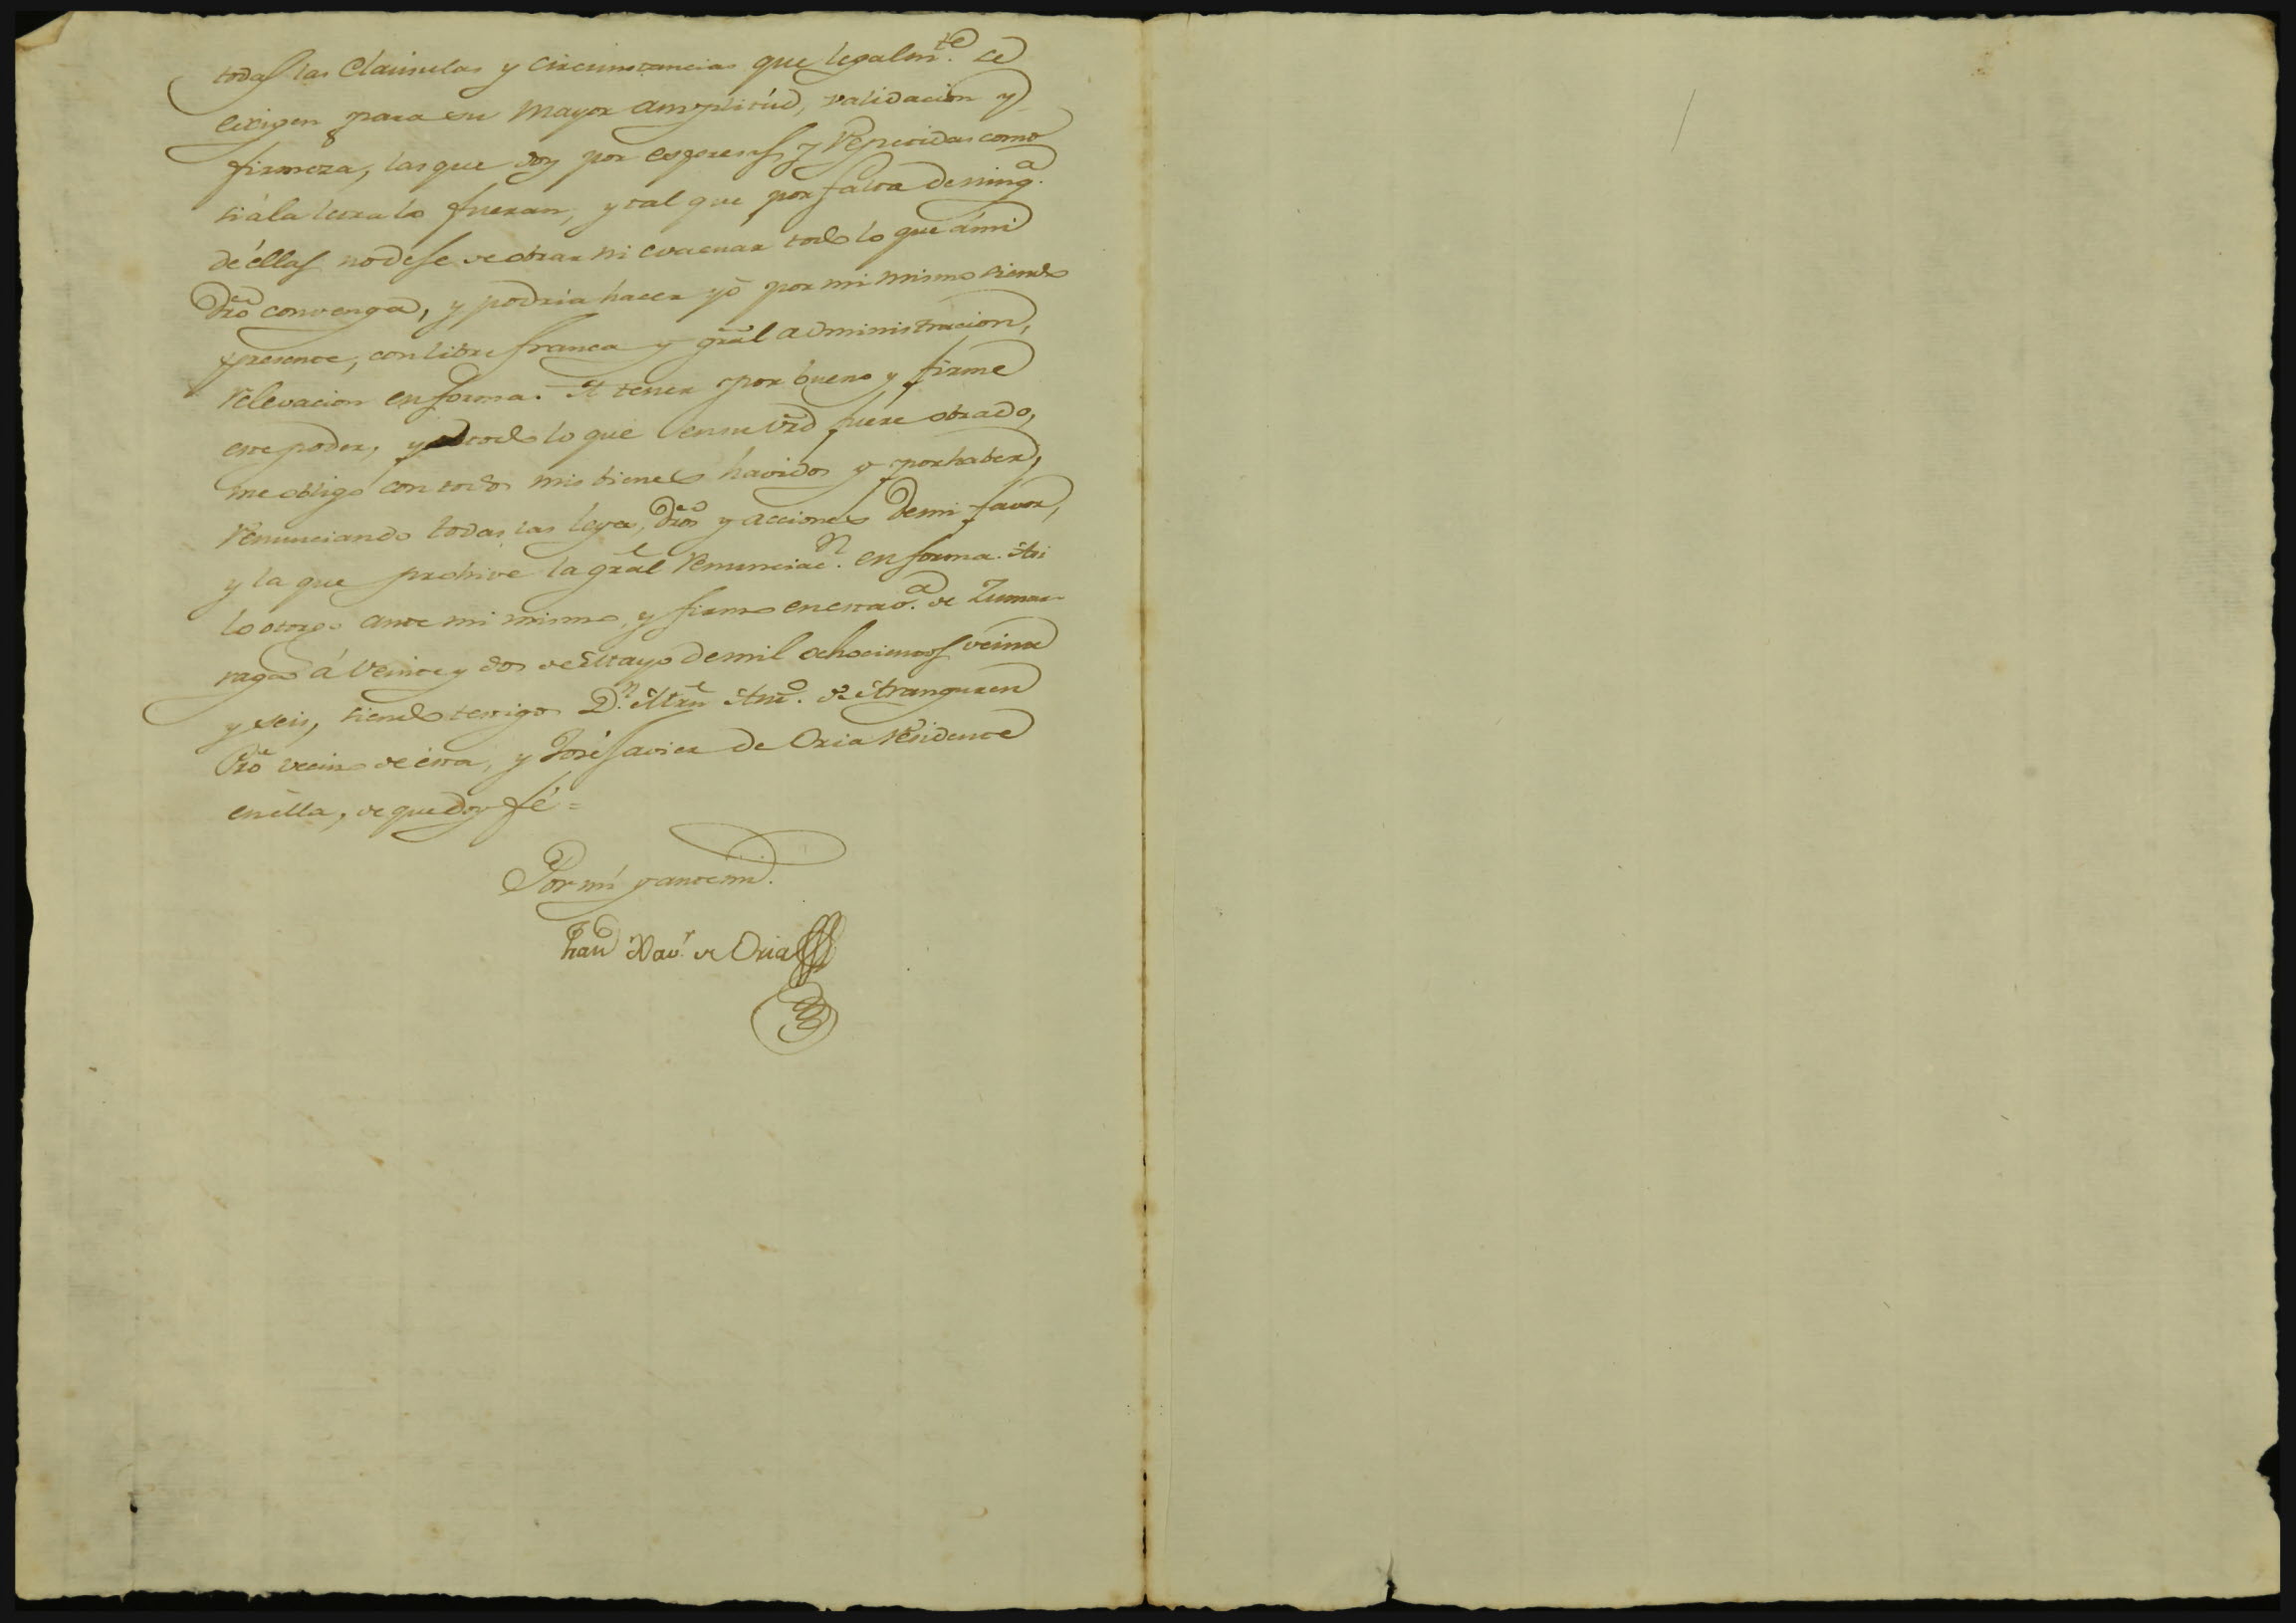 todas las Clausulas y circunstancias que legalm.te se
exigen para su mayor amplitud, validacion y
firmeza, las que doy por espresas y repetidas como
si á la letra lo fueran, y tal que por falta de ning.a
de éllas no dese de obrar ni evacuar todo lo que á mi
dró convenga, y podria hacer yó por mi mismo siendo
presente, con libre franca y gral administracion,
relevacion en forma. A tener por bueno y firme
este poder, y todo lo que en su vrd fuere obrado,
me obligo con todos mis bienes havidos y por haber,
renunciando todas las leyes, dros y acciones de mi favor,
y la que prohive la gral renunciac.n en forma. Asi
lo otorgo ante mi mismo, y firmo en esta v.a de Zumar-
raga á veinte y dos de Mayo de mil ochocientos veinte
y seis, siendo testigos D.n Mrn Ant.o de Aranguren
Pró vecino de ésta, y José Javier de Oria residente
en élla, de que doy fé =
Por mí y ante mí.
Xav.r de Oria